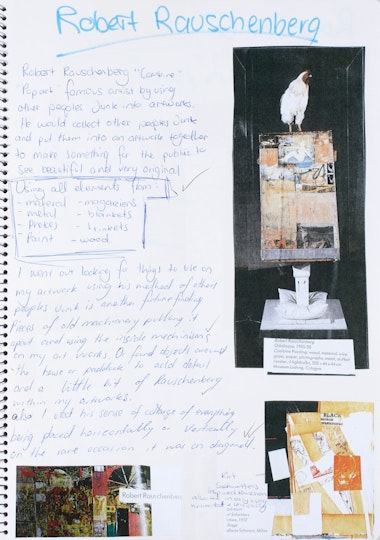 Robert Rauschenberg
Robert Rauschenberg "Combine"
Popart famous artist by using
other peoples Junk into artworks.
He would collect other peoples Junk
and put them into an artwork together
to make something for the public to
see beautiful and very original
Using all elements from:-
- material - magaziens
- metal - blankets
- Photos - trinkets
- Paint - wood
I went out looking for things to use on
my artwork using his method of others
peoples Junk is another future finding
Pieces of old machinary pulling it
apart and using the inside mechinisims
on my art works. Or found objects around
the house or paddock to add detail
and a little bit of Rauschenberg
within my artworks.
also I used his sense of collage of everything
being placed horizontally or vertically
on the rare occasion it was on diaginal.
Robert Rauschenberg
Odalisque, 1955-58
Museum Ludwig, Cologne
Robert Rauschenberg
Kurt
Schwitters
BLACK